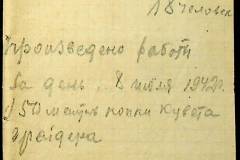 18 человек
Произведено работ
За день 8 июля 1942г.
150 метров копки кювета
грейдера